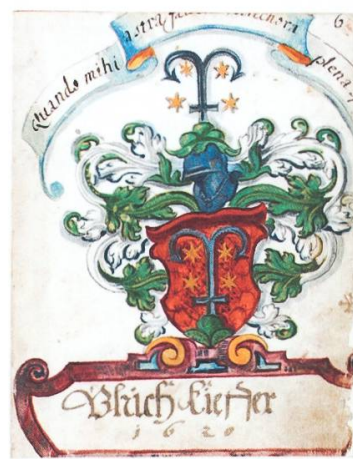 quando mihi astra plena
6
Vlrich Kieffer
1620